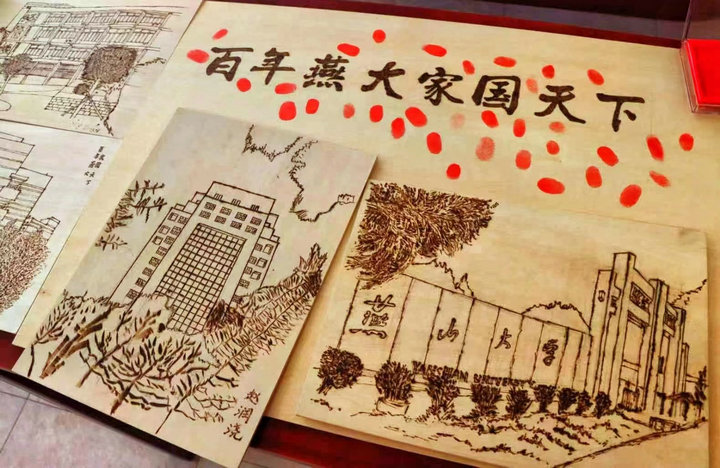 百年燕大家国天下
燕山大学
YANSHAN UNIVERSITY